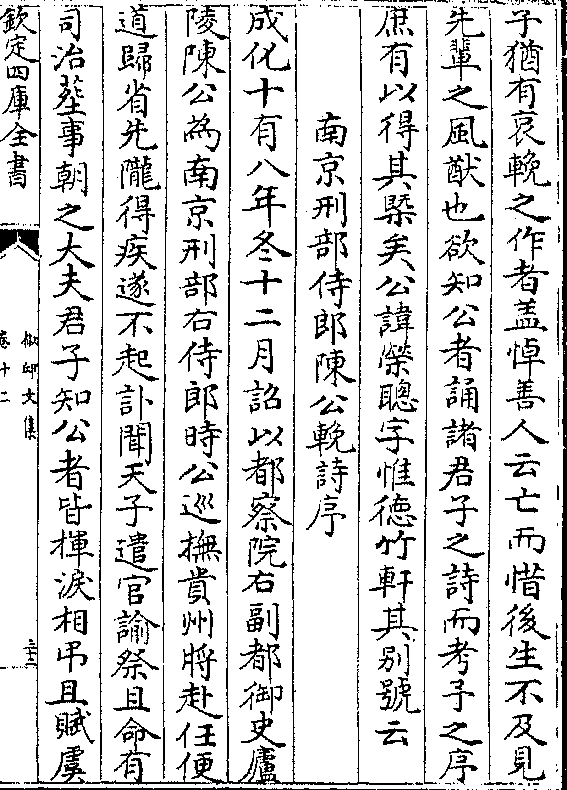 子猶有哀輓之作者盖悼善人云亡而惜後生不及見
先軰之風猷也欲知公者誦諸君子之詩而考予之序
庶有以得其槩矣公諱榮聰字惟徳竹軒其别號云
南京刑部侍郎陳公輓詩序
成化十有八年冬十二月詔以都察院右副都御史廬
陵陳公為南京刑部右侍郎時公巡撫貴州將赴任便
道歸省先隴得疾遂不起訃聞天子遣官諭祭且命有
司治塟事朝之大夫君子知公者皆揮淚相弔且賦虞
欽定四庫全書
卷十二